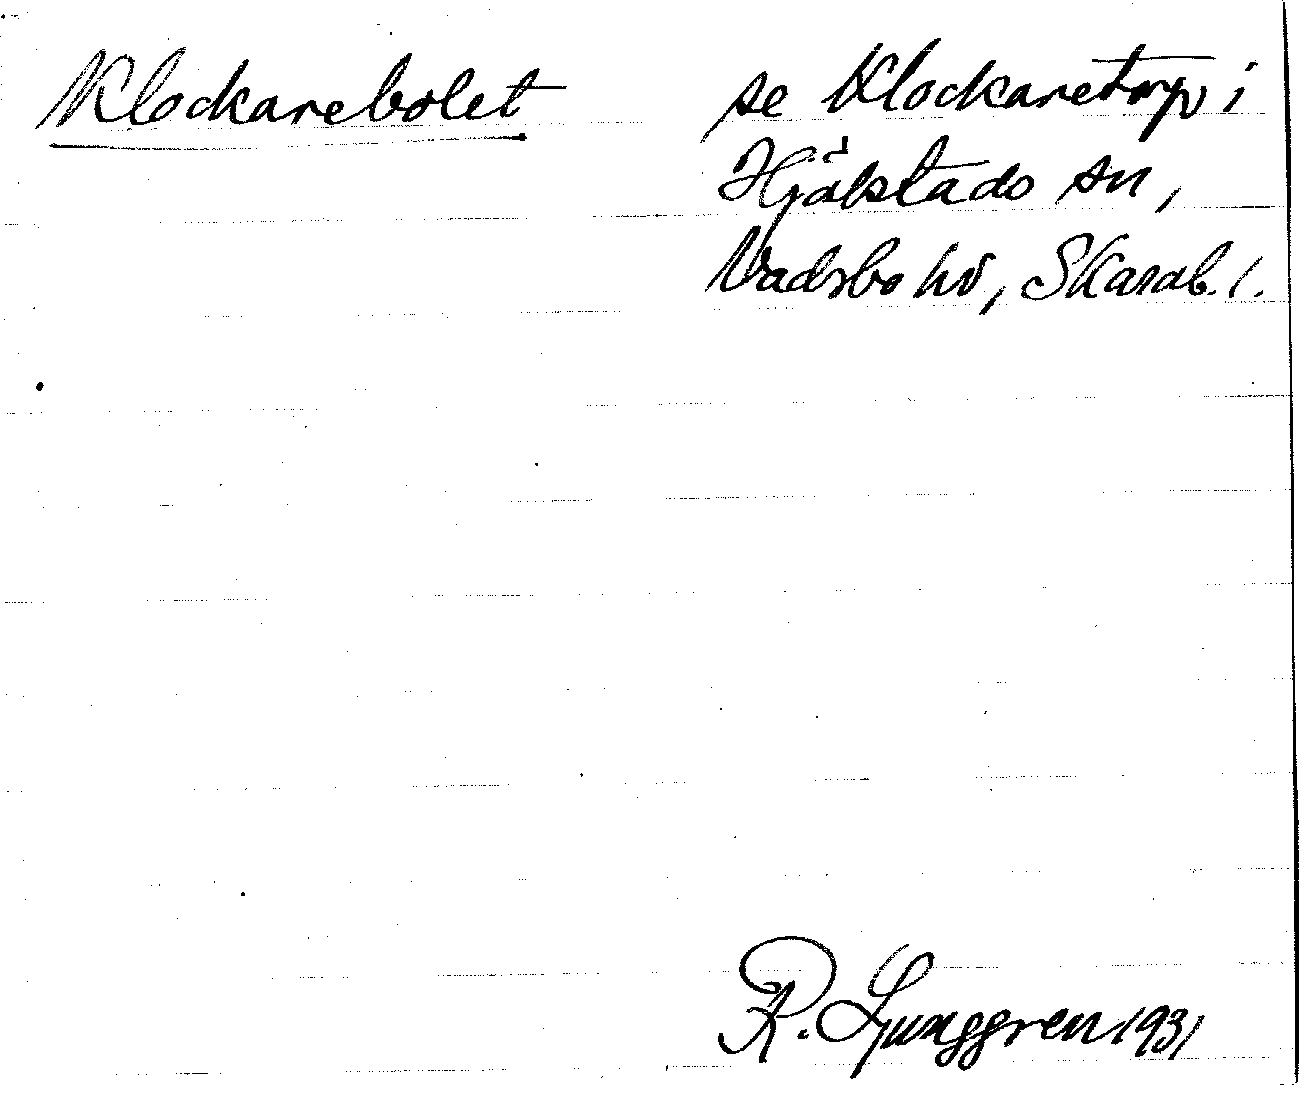 Klockarebolet
se Klockaretorp i
Hjälstads sn,
Vadsbo hd, Skarab. l.
R. Ljunggren 1931